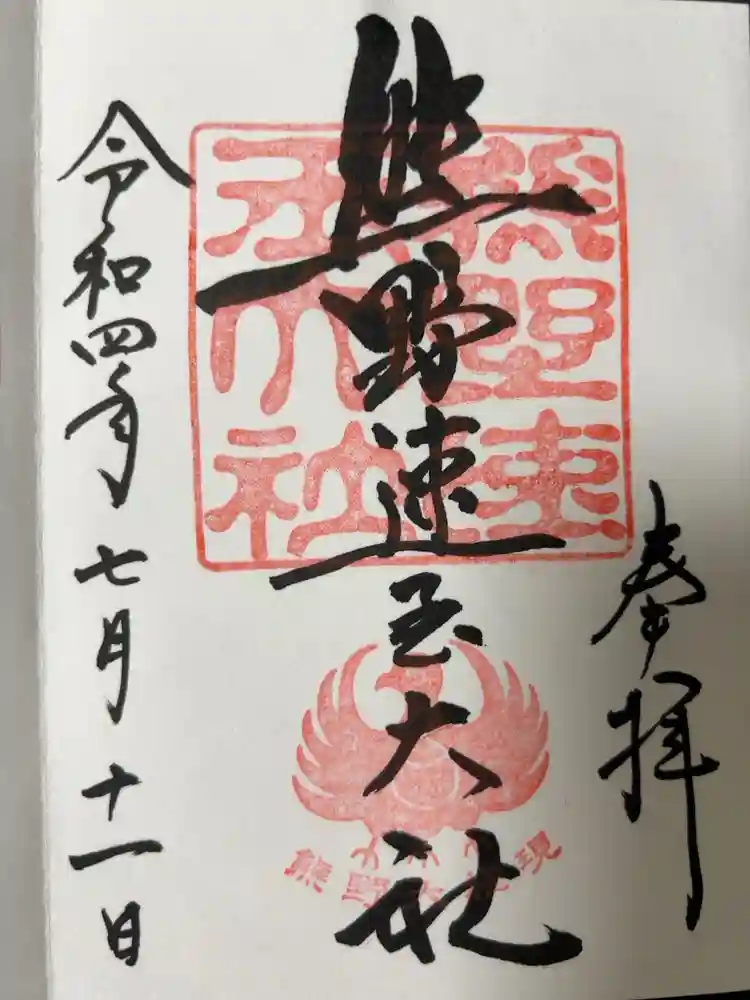 奉拝
熊野速玉大社
令和四年七月十一日
熊野速玉大社
熊野大権現